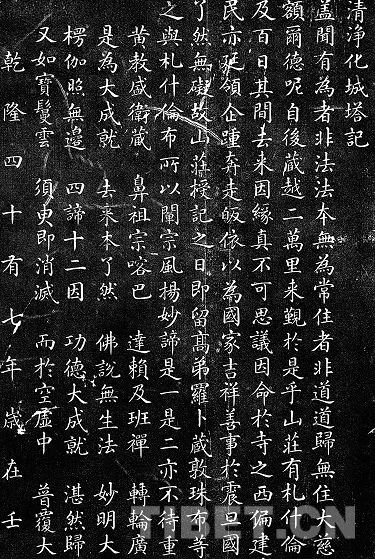 清淨化城塔記
蓋聞有為者非法法本無為常住者非道道歸無住大慈
額爾德呢自後藏越二萬里來覲於是乎山莊有札什倫
及百日其間去來因緣真不可思議因命於寺之西偏建
民亦延領企踵奔走皈依以為國家吉祥善事於震旦國
了然無礙故山莊授記之日即留高弟羅卜藏敦珠布等
之與札什倫布所以闡宗風揚妙諦是一是二亦不待重
黃教盛衛藏 鼻祖宗喀巴 達賴及班禪 轉輪廣
是為大成就 去來本了然 佛說無生法 妙明大
楞伽照無邊 四諦十二因 功德大成就 湛然歸
又如寶鬘雲 須臾即消滅 而於空虛中 普覆大
乾隆四十有七年歲在壬
TIBET.CN